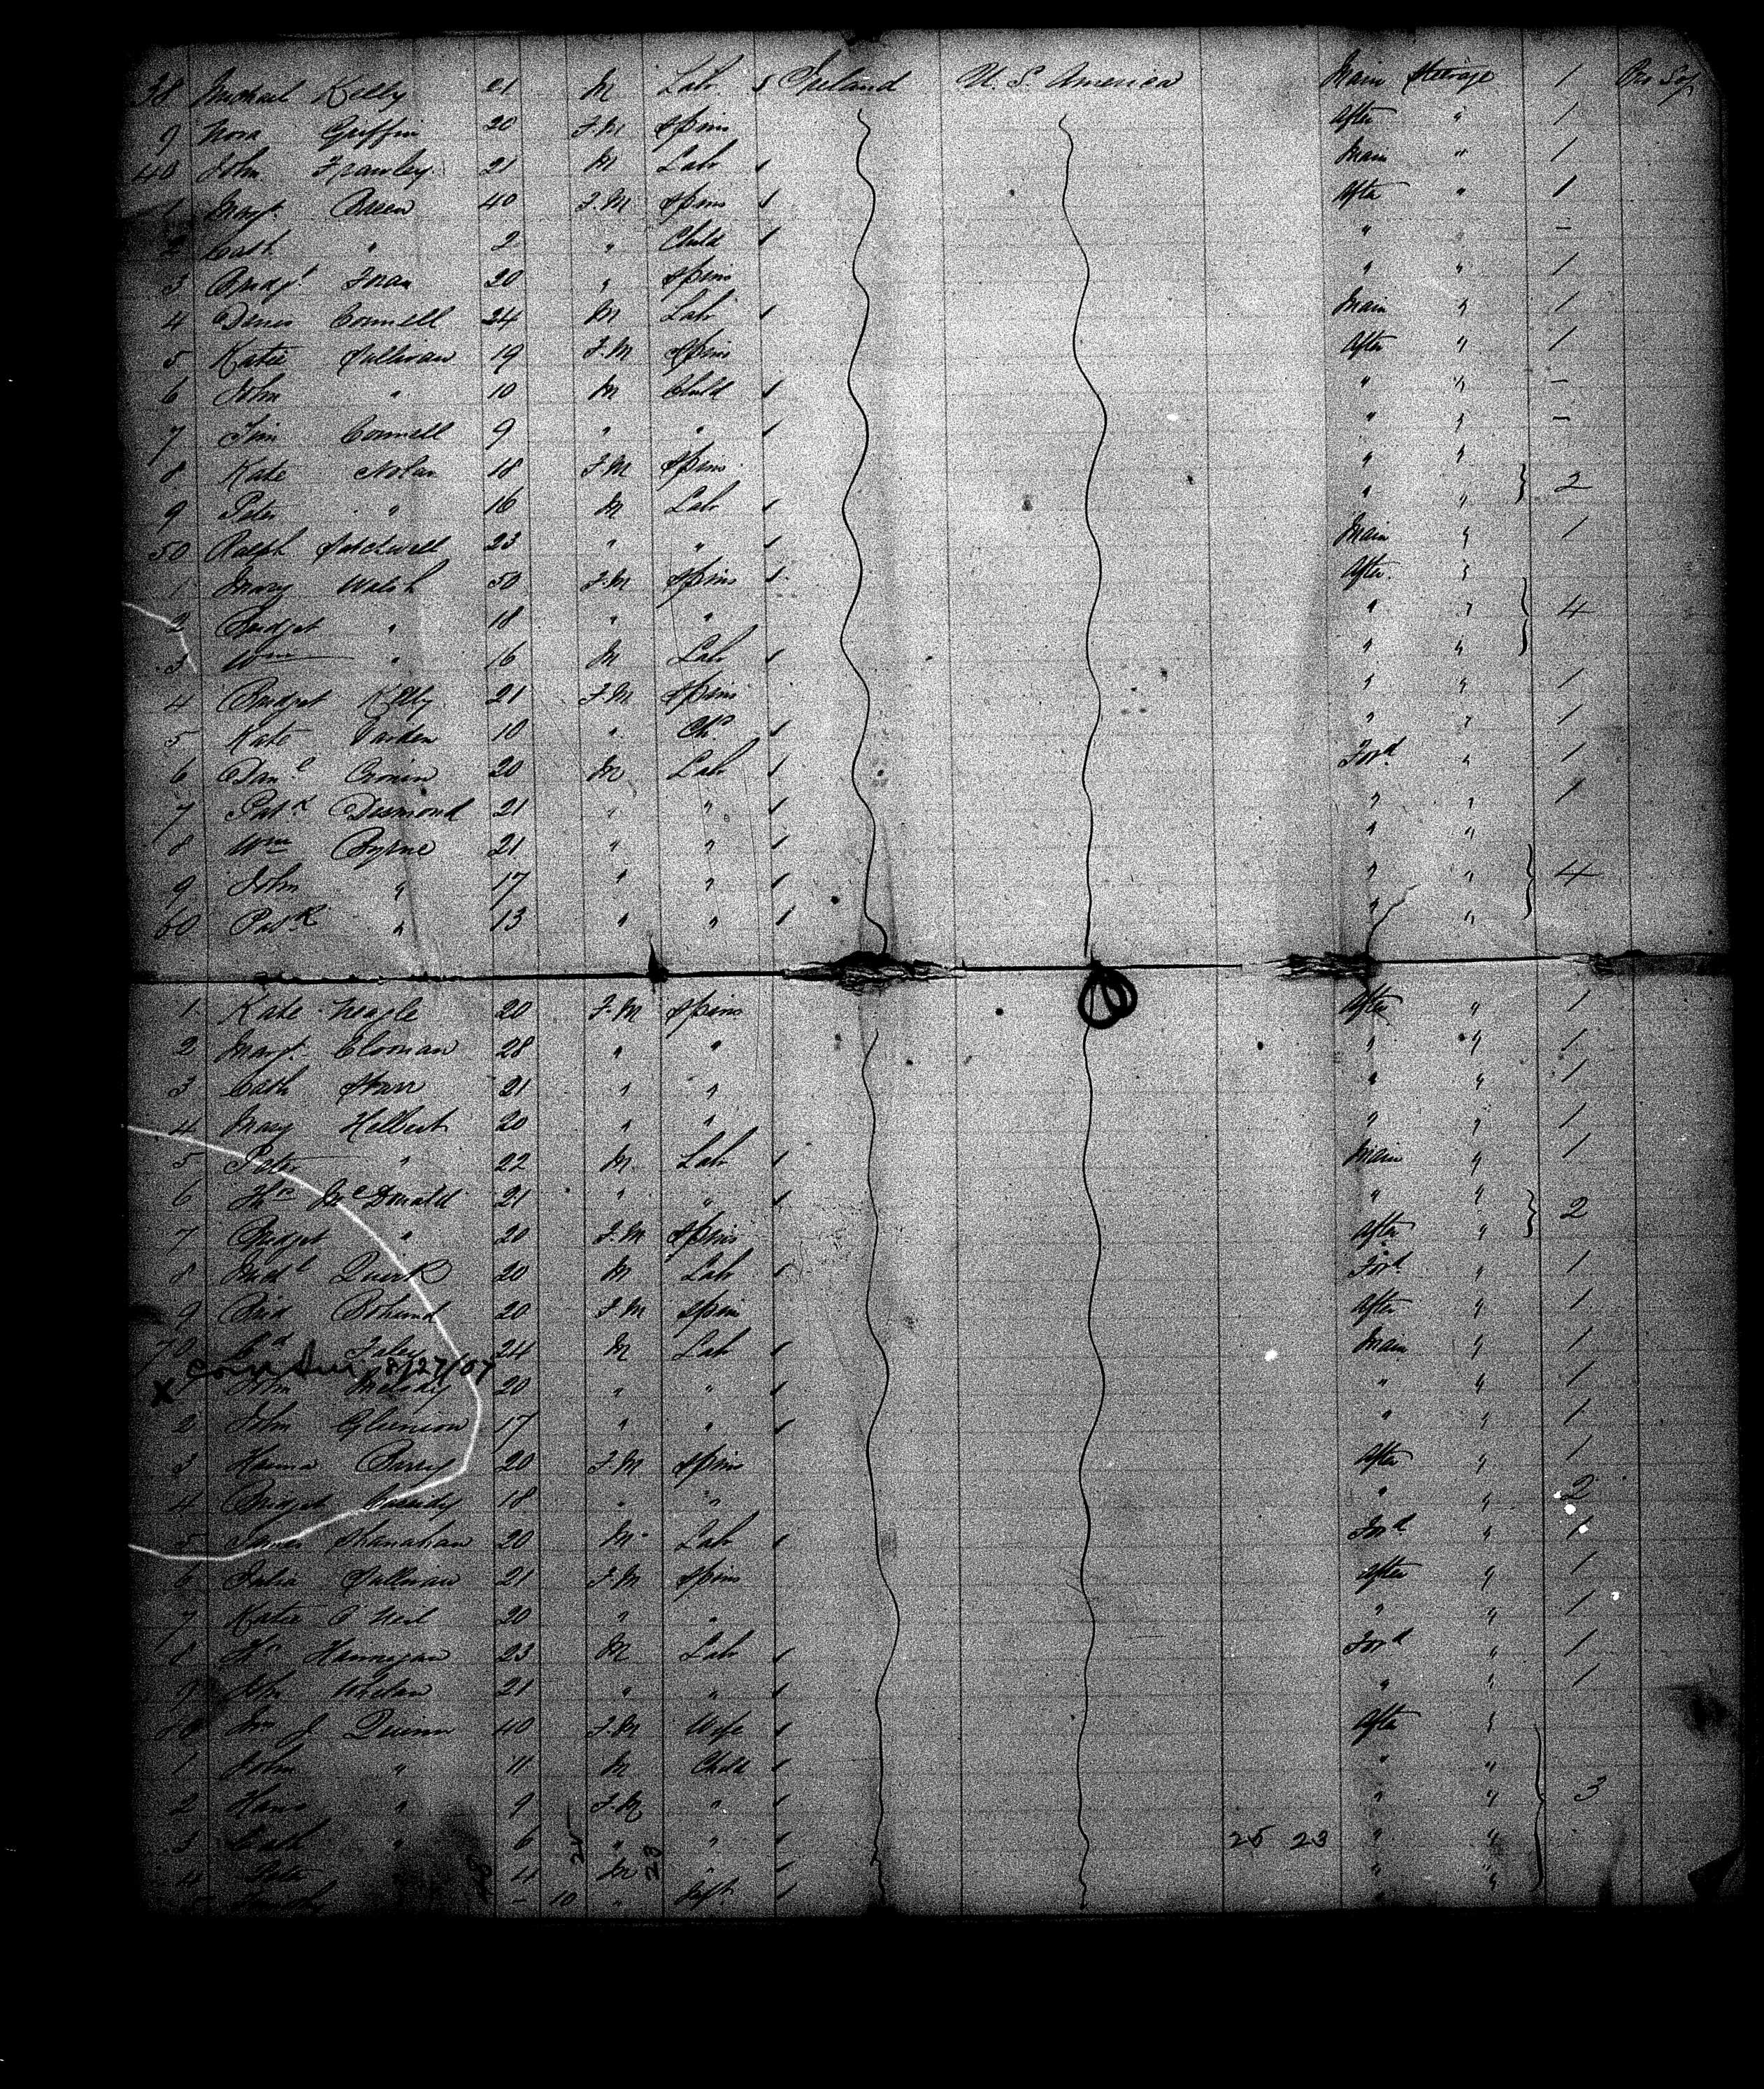 38 Michael Kelly 21 M Lab Ireland U. S. America Main Steerage 1 Pro Soj
9 Nora Griffin 20 F.M Spins After " 1
40 John Frawley 21 M Lab Main " 1
1 Margt Breen 40 F.M Spins After " 1
2 Cath " 2 " Child " " –
3 20 " Spins " 1
4 Denis Connell 24 M Lab Main " 1
5 Katie Sullivan 19 F.M Spins After " 1
6 John " 10 M Child " " –
7 Tim Connell 9 " " " " –
8 Kate Nolan 18 F.M Spins " "
9 Peter " 16 M Lab " " 2
50 Ralph 23 " " Main " 1
1 Mary Walsh 50 F.M Spins After "
2 Bridget " 18 " " " " 4
3 Wm " 16 M Lab " "
4 Bridget Kelly 21 F.M Spins " " 1
5 Kate 10 " Chd " " 1
6 Danl Cronin 20 M Lab Ford " 1
7 Patk Desmond 21 " " " " 1
8 Wm Byrne 21 " " " "
9 John " 17 " " " " 4
60 Patk " 13 " " " "
1 Kate Neagle 20 F.M Spins After " 1
2 Margt Cloonan 28 " " " " 1
3 Cath 21 " " " " 1
4 Mary Helbert 20 " " " " 1
5 Peter " 22 M Lab Main " 1
6 McDonald 21 " " " "
7 Bridget " 20 F.M Spins After " 2
8 Michl Quirk 20 M Lab Ford " 1
9 Brid 20 F.M Spins After " 1
70 Foley 24 M Lab Main " 1
X 8/27/07
John Melody 20 " " " " 1
2 John 17 " " " " 1
3 Hanna Barry 20 F.M Spins After " 1
4 Bridget Cassidy 18 " " " " 2
5 James Shanahan 20 M Lab Ford " 1
6 Julia Sullivan 21 F.M Spins After " 1
7 Katie O'Neil 20 " " " " 1
8 Hannigan 23 M Lab Ford " 1
9 John Whelan 21 " " " " 1
80 Quinn 40 F.M Wife After "
1 John " 11 M Child " "
2 " 9 F.M " " " 3
3 Cath " 6 " " 25 23 " "
4 Peter " 4 M " " "
5 – 10 " Inft "